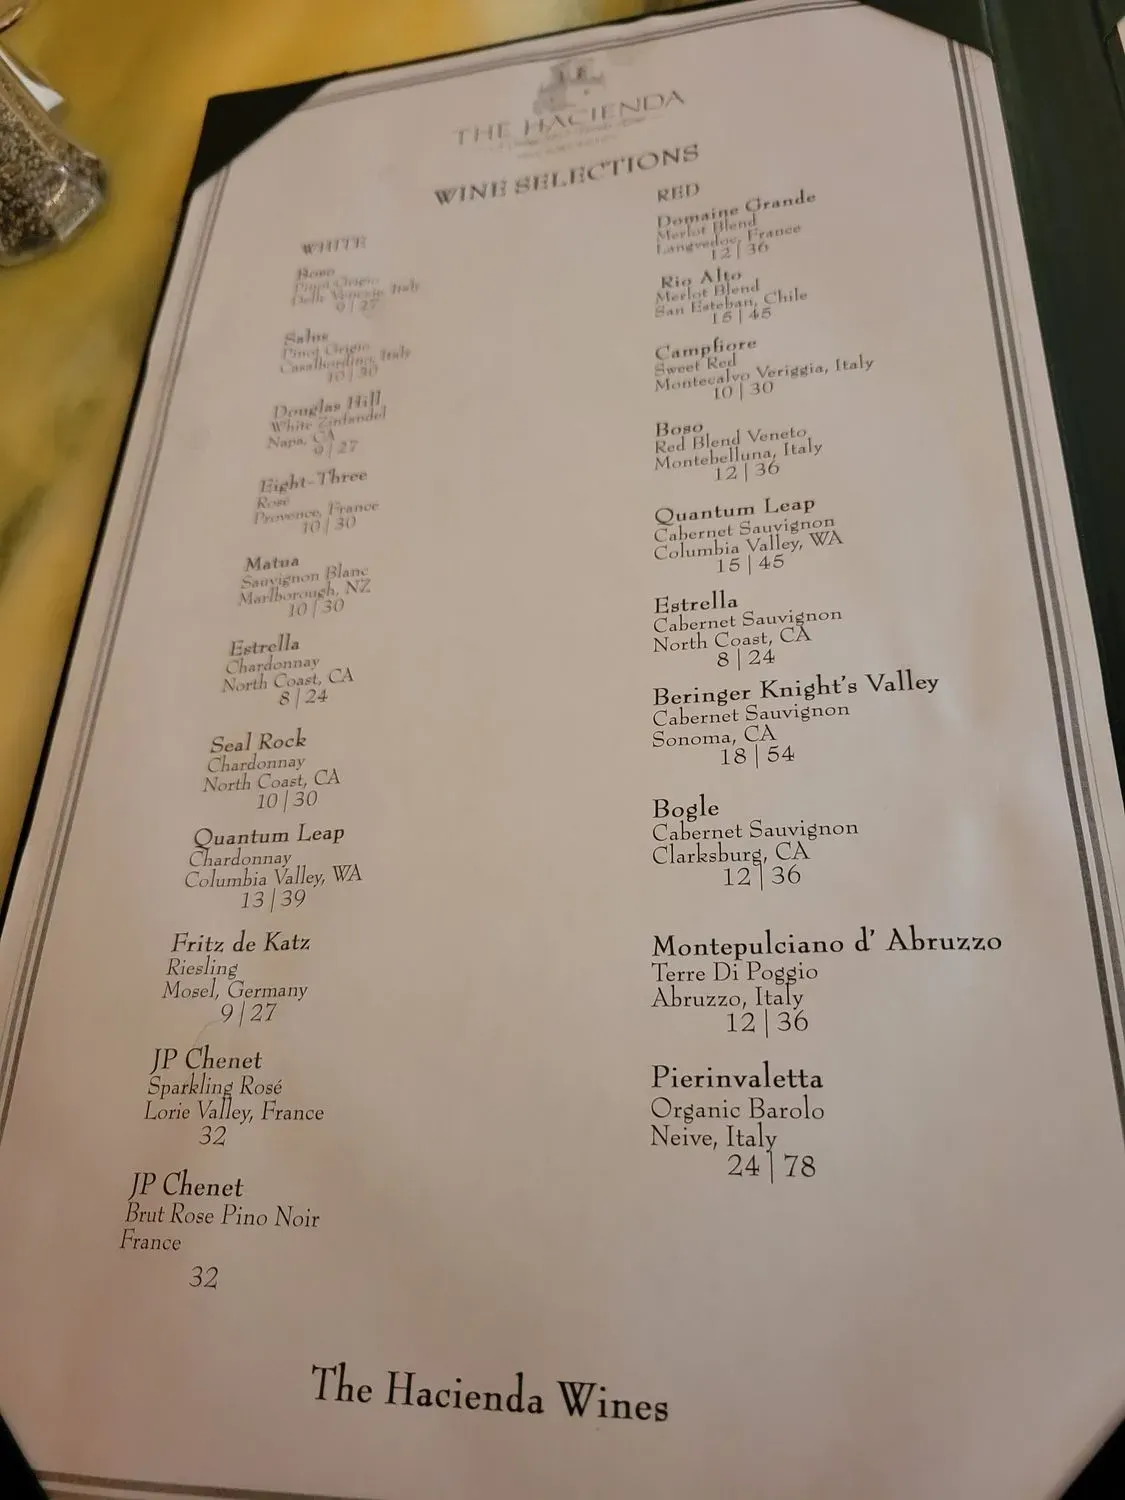 THE HACIENDA
WINE SELECTIONS
WHITE
Boso
Pinot Grigio
Delle Venezie, Italy
9 | 27
Salus
Pinot Grigio
Casalbordino, Italy
10 | 30
Douglas Hill
White Zinfandel
Napa, CA
9 | 27
Eight-Three
Rosé
Provence, France
10 | 30
Matua
Sauvignon Blanc
Marlborough, NZ
10 | 30
Estrella
Chardonnay
North Coast, CA
8 | 24
Seal Rock
Chardonnay
North Coast, CA
10 | 30
Quantum Leap
Chardonnay
Columbia Valley, WA
13 | 39
Fritz de Katz
Riesling
Mosel, Germany
9 | 27
JP Chenet
Sparkling Rosé
Lorie Valley, France
32
JP Chenet
Brut Rose Pino Noir
France
32
RED
Domaine Grande
Merlot Blend
Langvedoc, France
12 | 36
Rio Alto
Merlot Blend
San Esteban, Chile
15 | 45
Campfiore
Sweet Red
Montecalvo Veriggia, Italy
10 | 30
Boso
Red Blend Veneto
Montebelluna, Italy
12 | 36
Quantum Leap
Cabernet Sauvignon
Columbia Valley, WA
15 | 45
Estrella
Cabernet Sauvignon
North Coast, CA
8 | 24
Beringer Knight's Valley
Cabernet Sauvignon
Sonoma, CA
18 | 54
Bogle
Cabernet Sauvignon
Clarksburg, CA
12 | 36
Montepulciano d' Abruzzo
Terre Di Poggio
Abruzzo, Italy
12 | 36
Pierinvaletta
Organic Barolo
Neive, Italy
24 | 78
The Hacienda Wines